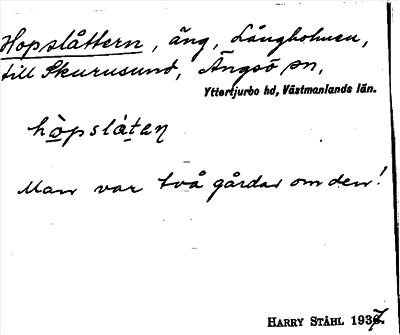 Hopslåttern, äng, Långholmen,
till Skurusund, Ängsö sn,
Yttertjurbo hd, Västmanlands län.
hòpslátaɳ
Man var två gårdar om den!
HARRY STÅHL 1937.